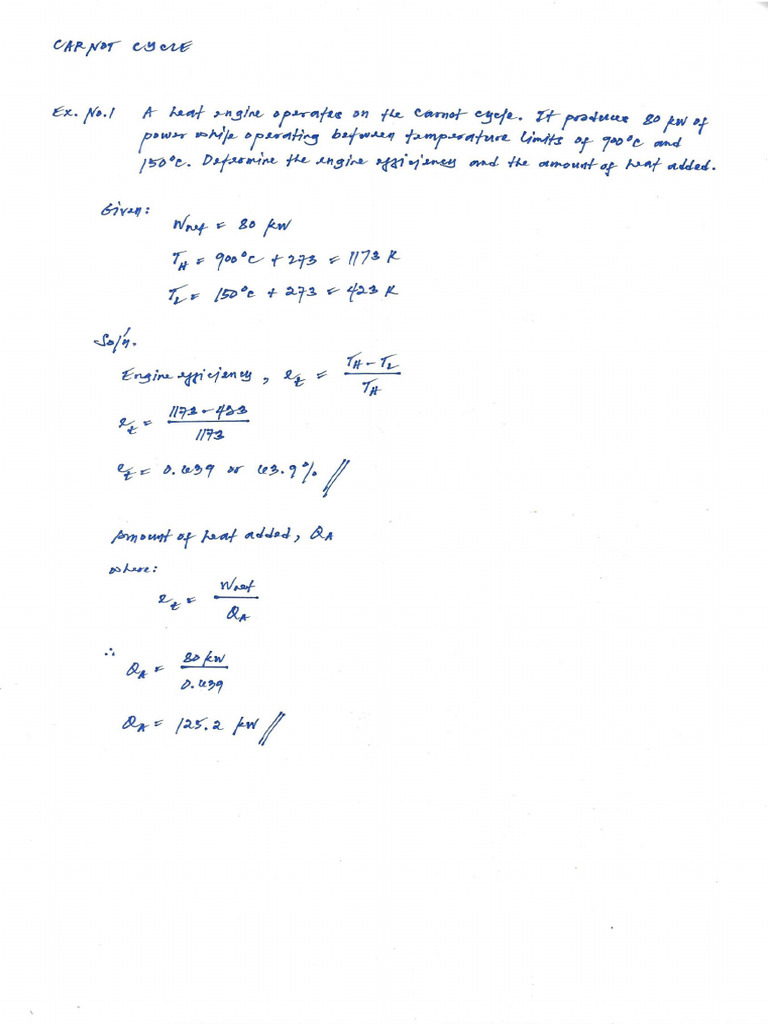 CARNOT CYCLE
Ex. No.1 A heat engine operates on the Carnot cycle. It produces 80 kW of
power while operating between temperature limits of 900°C and
150°C. Determine the engine efficiency and the amount of heat added.
Given:
Wnet = 80 kW
TH = 900°C + 273 = 1173 K
TL = 150°C + 273 = 423 K
Sol'n.
Engine efficiency, et = TH - TL / TH
et = 1173 - 423 / 1173
et = 0.639 or 63.9% //
Amount of heat added, QA
where:
et = Wnet / QA
∴ QA = 80 kW / 0.639
QA = 125.2 kW //